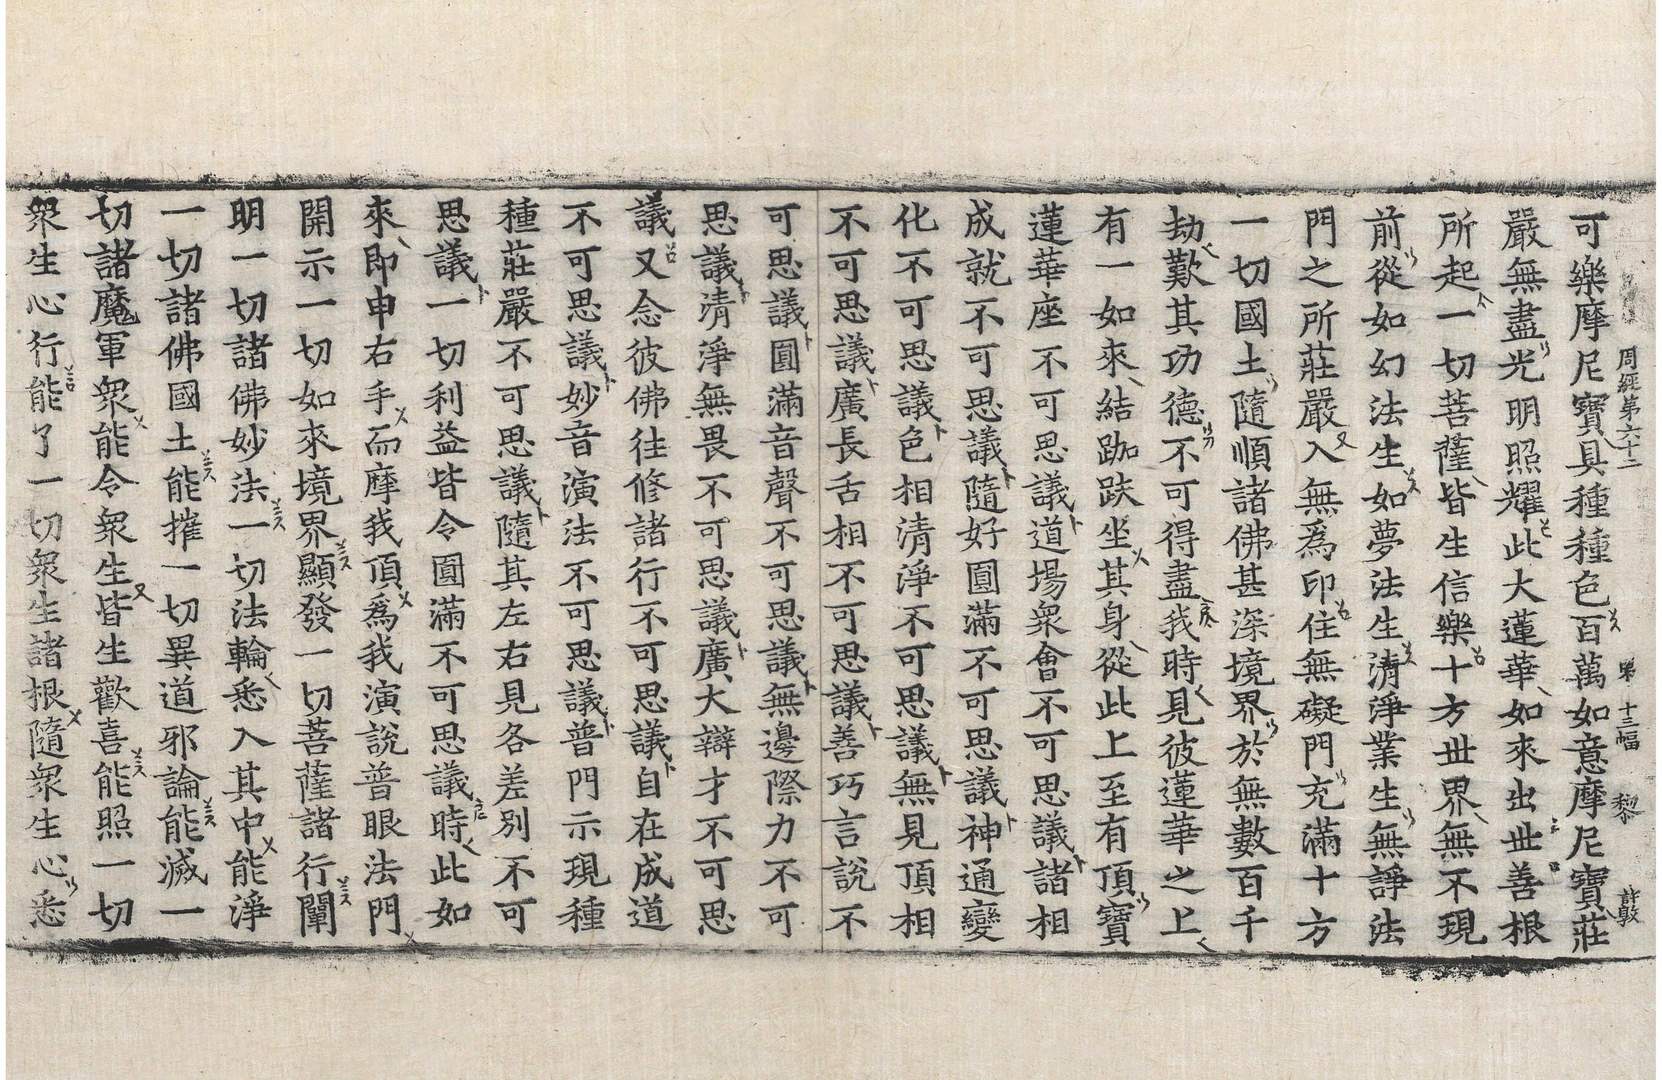 周經第六十二 第 十三幅 黎 許敦
可樂摩尼寶具種種色百萬如意摩尼寶莊
嚴無盡光明照耀此大蓮華如來出世善根
所起一切菩薩皆生信樂十方世界無不現
前從如幻法生如夢法生清淨業生無諍法
門之所莊嚴入無為印住無礙門充滿十方
一切國土隨順諸佛甚深境界於無數百千
劫歎其功德不可得盡我時見彼蓮華之上
有一如來結跏趺坐其身從此上至有頂寶
蓮華座不可思議道場眾會不可思議諸相
成就不可思議隨好圓滿不可思議神通變
化不可思議色相清淨不可思議無見頂相
不可思議廣長舌相不可思議善巧言說不
可思議圓滿音聲不可思議無邊際力不可
思議清淨無畏不可思議廣大辯才不可思
議又念彼佛往修諸行不可思議自在成道
不可思議妙音演法不可思議普門示現種
種莊嚴不可思議隨其左右見各差別不可
思議一切利益皆令圓滿不可思議時此如
來即申右手而摩我頂為我演說普眼法門
開示一切如來境界顯發一切菩薩諸行闡
明一切諸佛妙法一切法輪悉入其中能淨
一切諸佛國土能摧一切異道邪論能滅一
切諸魔軍眾能令眾生皆生歡喜能照一切
眾生心行能了一切眾生諸根隨眾生心悉